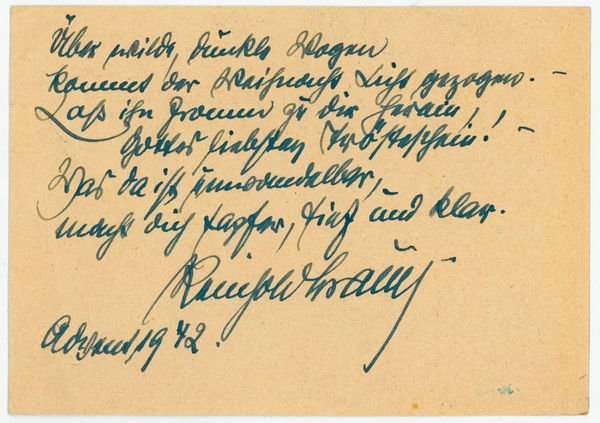 Über wilde, dunkle Wogen
kommt der Weihnacht Licht gezogen. –
Laß ihn fromm zu dir herein,
Gottes liebsten Trösteschein! –
Was da ist unwandelbar,
macht dich tapfer, tief und klar.
Reinhold Braun
Advent 1942.